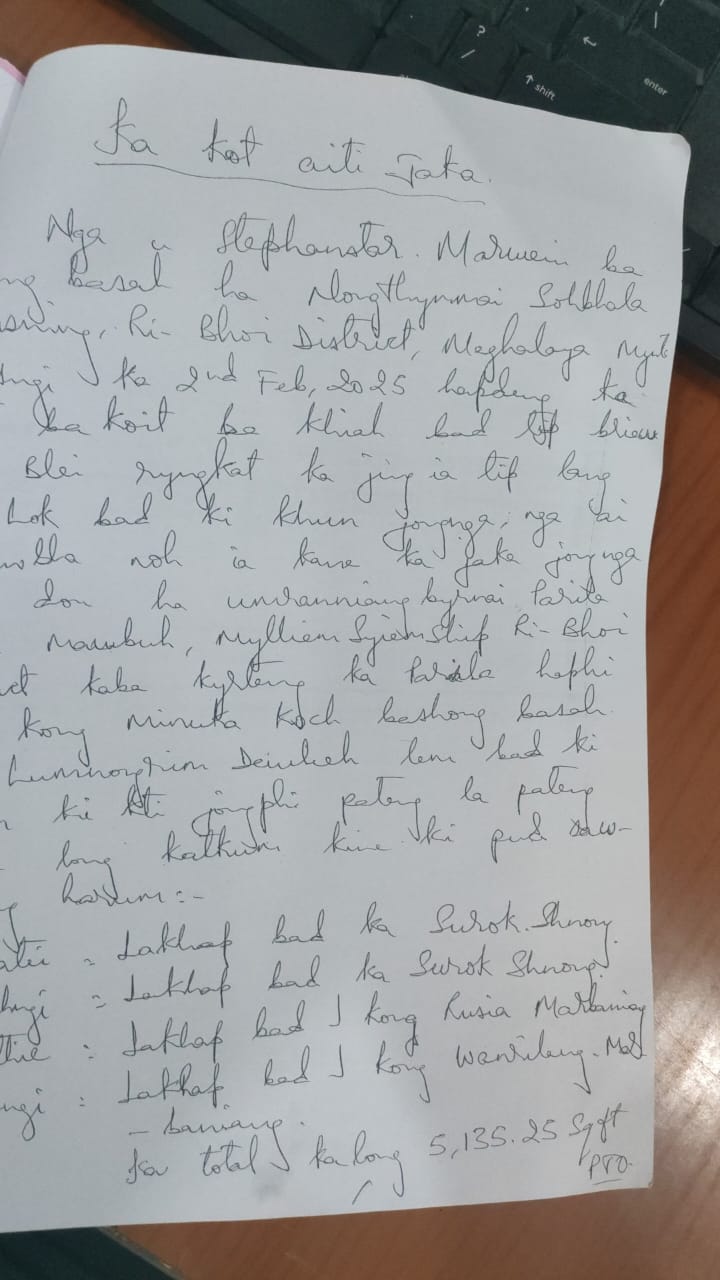 Ka kot aiti Jaka.
Nga u Stephanstar. Marwein ba
ng basah ha Nongthymmai Sohbhala
sning, Ri-Bhoi District, Meghalaya Mynta
ngi ka 2nd Feb, 2025 hapdeng ka
ba koit ba khiah bad tip briew
Blei ryngkat ka jing ia tip lang
Lok bad ki khun jongnga, nga ai
noh ia kane ka jaka jongnga
don ha umranniang byrwai
Mawbuh, Mylliem Syiemship Ri-Bhoi
ict kaba kyrteng ka haphi
kong Minuka Koch bashong basah
Lumnongrim Deiulieh lem bad ki
ki kti jongphi pateng la pateng
long katkum kine ki pud saw-
harum:-
: Lakhap bad ka Surok. Shnong.
: Lakhap bad ka Surok Shnong.
: Lakhap bad I kong Rusia Marbaniang
ngi : Lakhap bad I kong Wansilang. Mar
- baniang.
Ka total ka long 5,135.25 Sqft
PTO.
? /
shift
enter